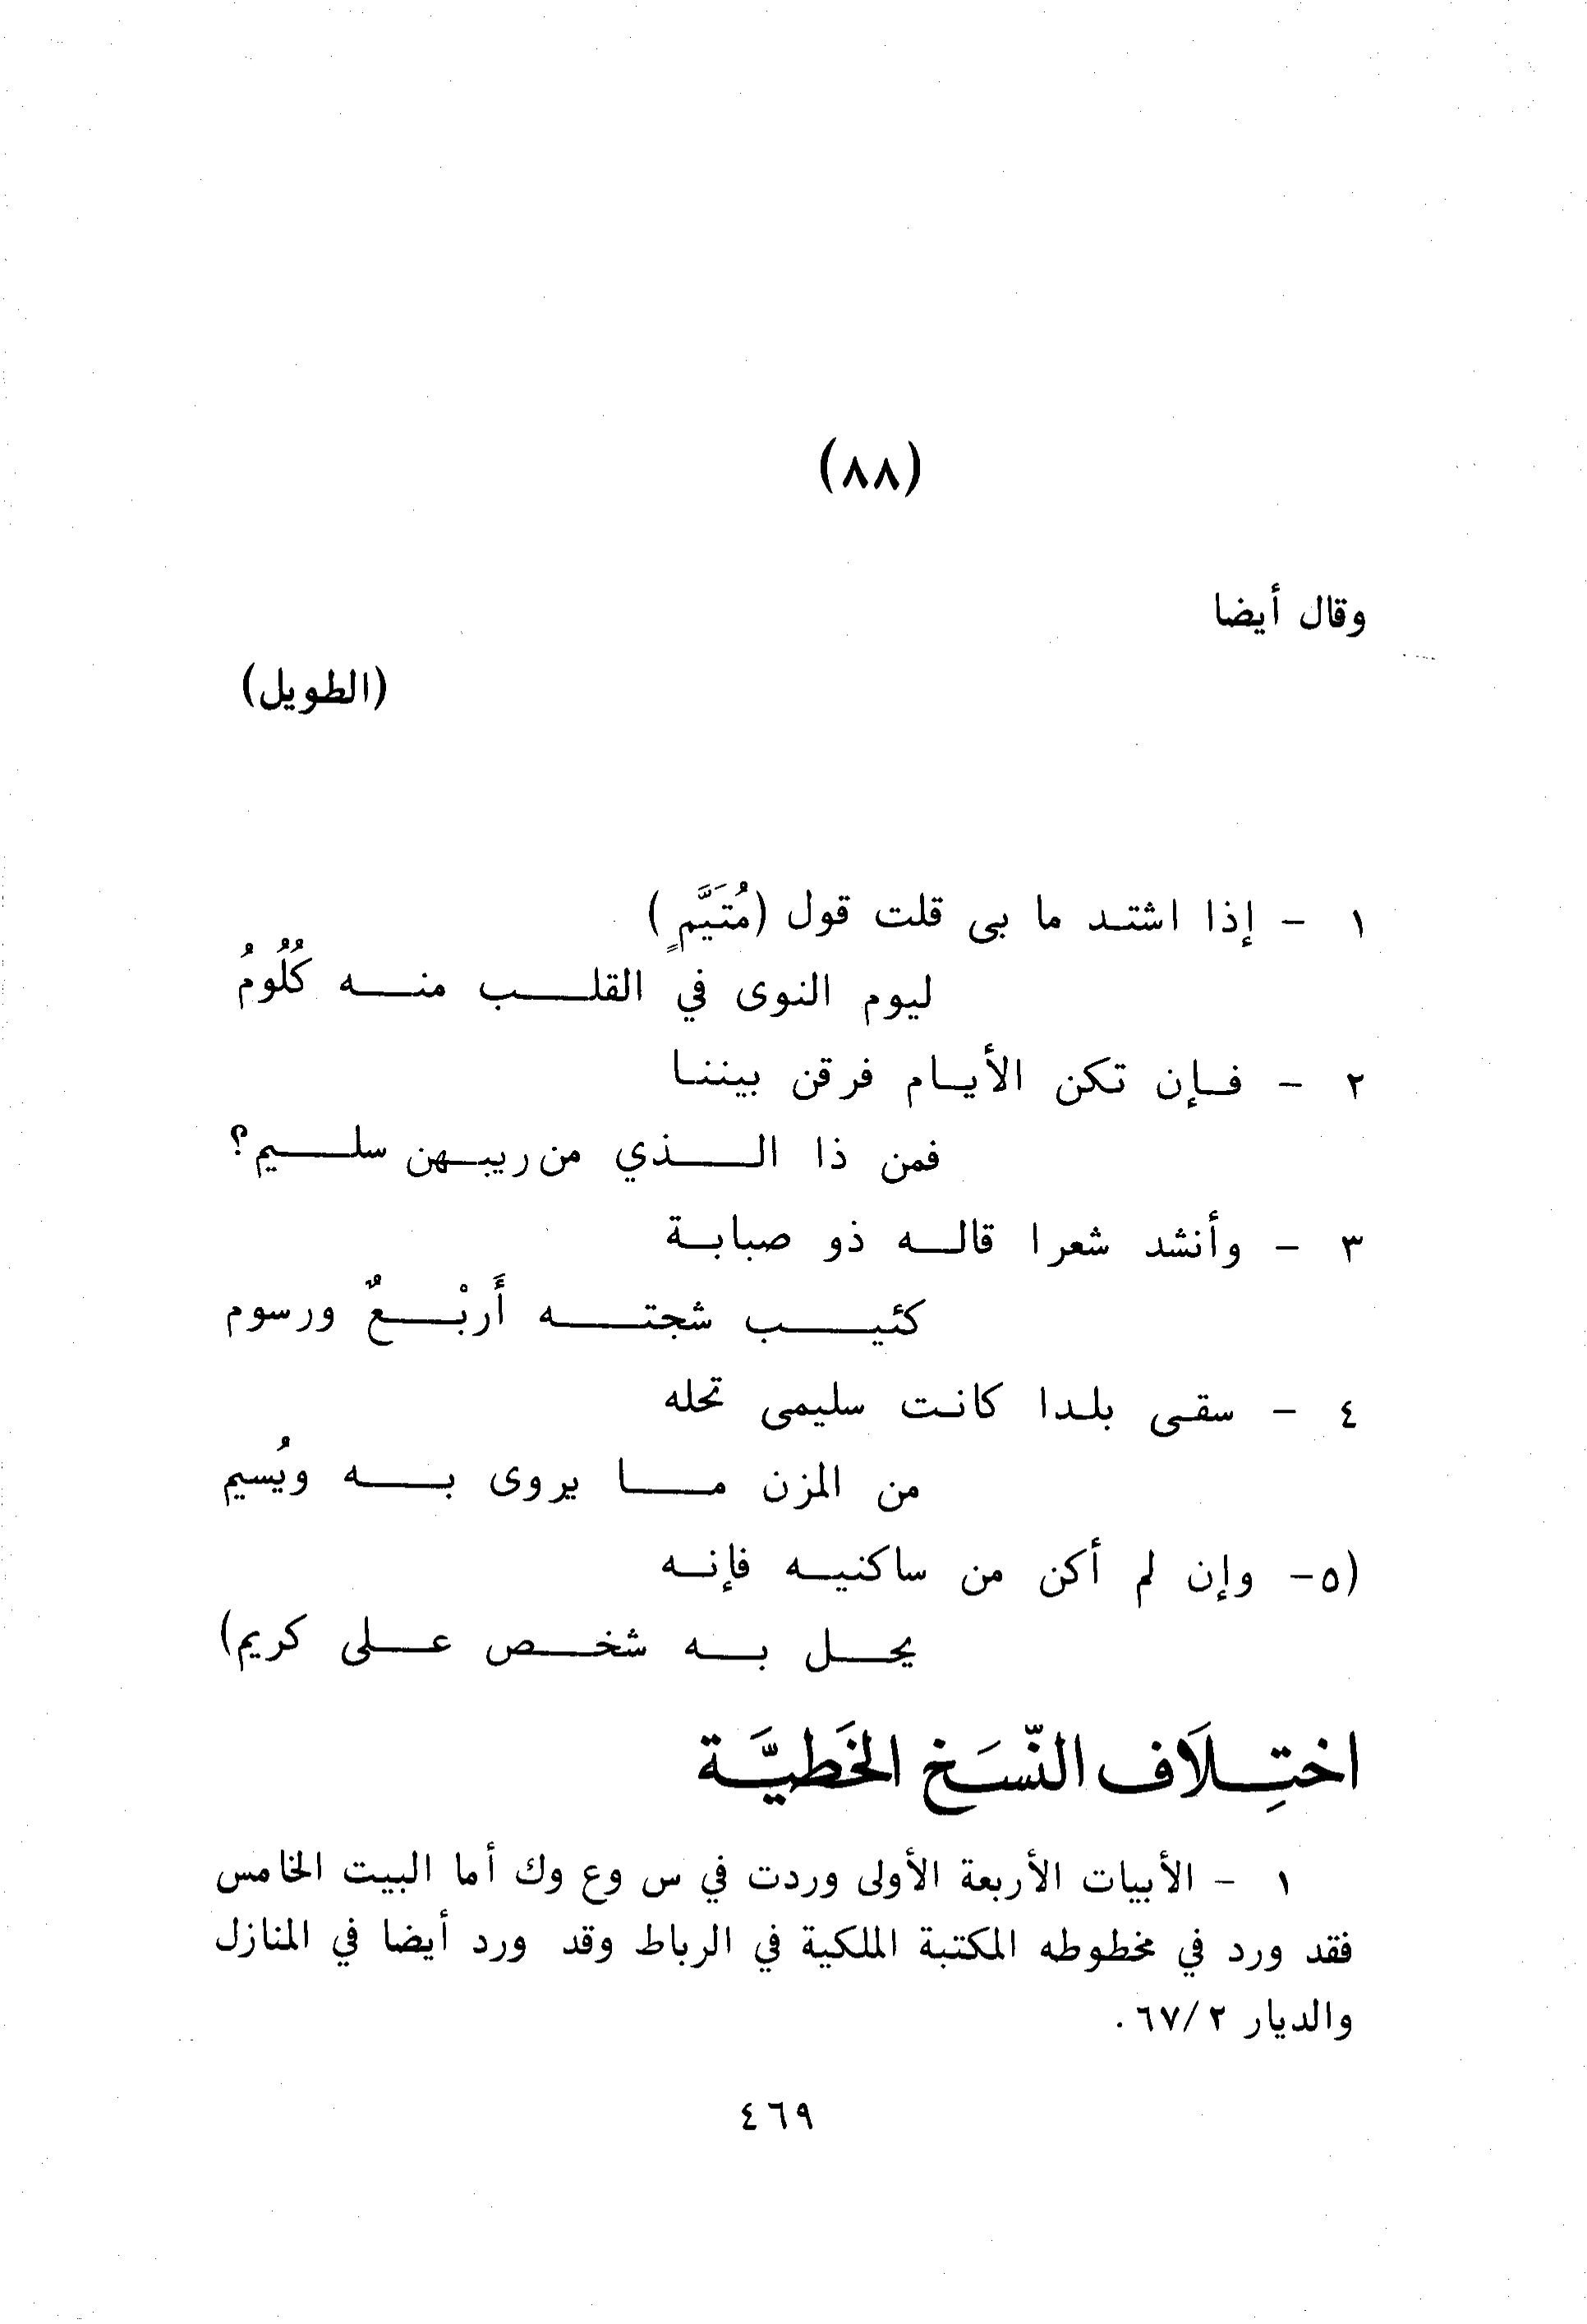 (٨٨)
وقال أيضا
(الطويل)
١ - إذا اشتد ما بى قلت قول (مُتَيَّمٍ)
ليوم النوى في القلب منه كُلُومُ
٢ - فإن تكن الأيام فرقن بيننا
فمن ذا الذي من ريبهن سليم؟
٣ - وأنشد شعرا قاله ذو صبابة
كئيب شجته أَربْعٌ ورسوم
٤ - سقى بلدا كانت سليمى تحله
من المزن ما يروى به ويُسيم
(٥- وإن لم أكن من ساكنيه فإنه
يحل به شخص على كريم)
اختِلَاف النّسَخ الخَطيَّة
١ - الأبيات الأربعة الأولى وردت في س وع وك أما البيت الخامس
فقد ورد في مخطوطه المكتبة الملكية في الرباط وقد ورد أيضا في المنازل
والديار ٢/٦٧.
٤٦٩